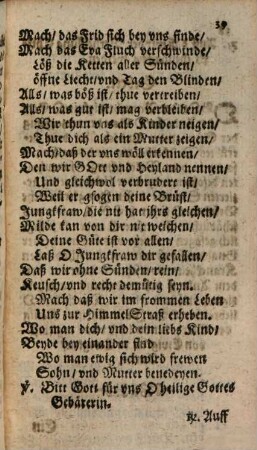 39
Mach/ das Frid sich bey vns finde/
Mach das Eva Fluch verschwinde/
Löß die Ketten aller Sünden/
öffne Liecht/ vnd Tag den Blinden/
Alls/ was böß ist/ thue vertreiben/
Alls/ was gut ist/ mag verbleiben/
Wir thun vns als Kinder neigen/
Thue dich als ein Mutter zeigen/
Mach/ daß der vns wöll erkennen/
Den wir GOtt vnd Heyland nennen/
Und gleichwol verbrudert ist/
Weil er gsogen deine Brüst/
Jungkfraw/ die nit hat jhrs gleichen/
Milde kan von dir nit weichen/
Deine Güte ist vor allen/
Laß O Jungkfraw dir gefallen/
Daß wir ohne Sünden/ rein/
Keusch/ vnd recht demütig seyn.
Mach daß wir im frommen Leben
Uns zur HimmelStraß erheben.
Wo man dich/ vnd dein liebs Kind/
Beyde bey einander find
Wo man ewig sich wird frewen
Sohn/ vnd Mutter benedeyen.
℣. Bitt Gott für vns O heilige Gottes
Gebärerin.
ꝛc. Auff